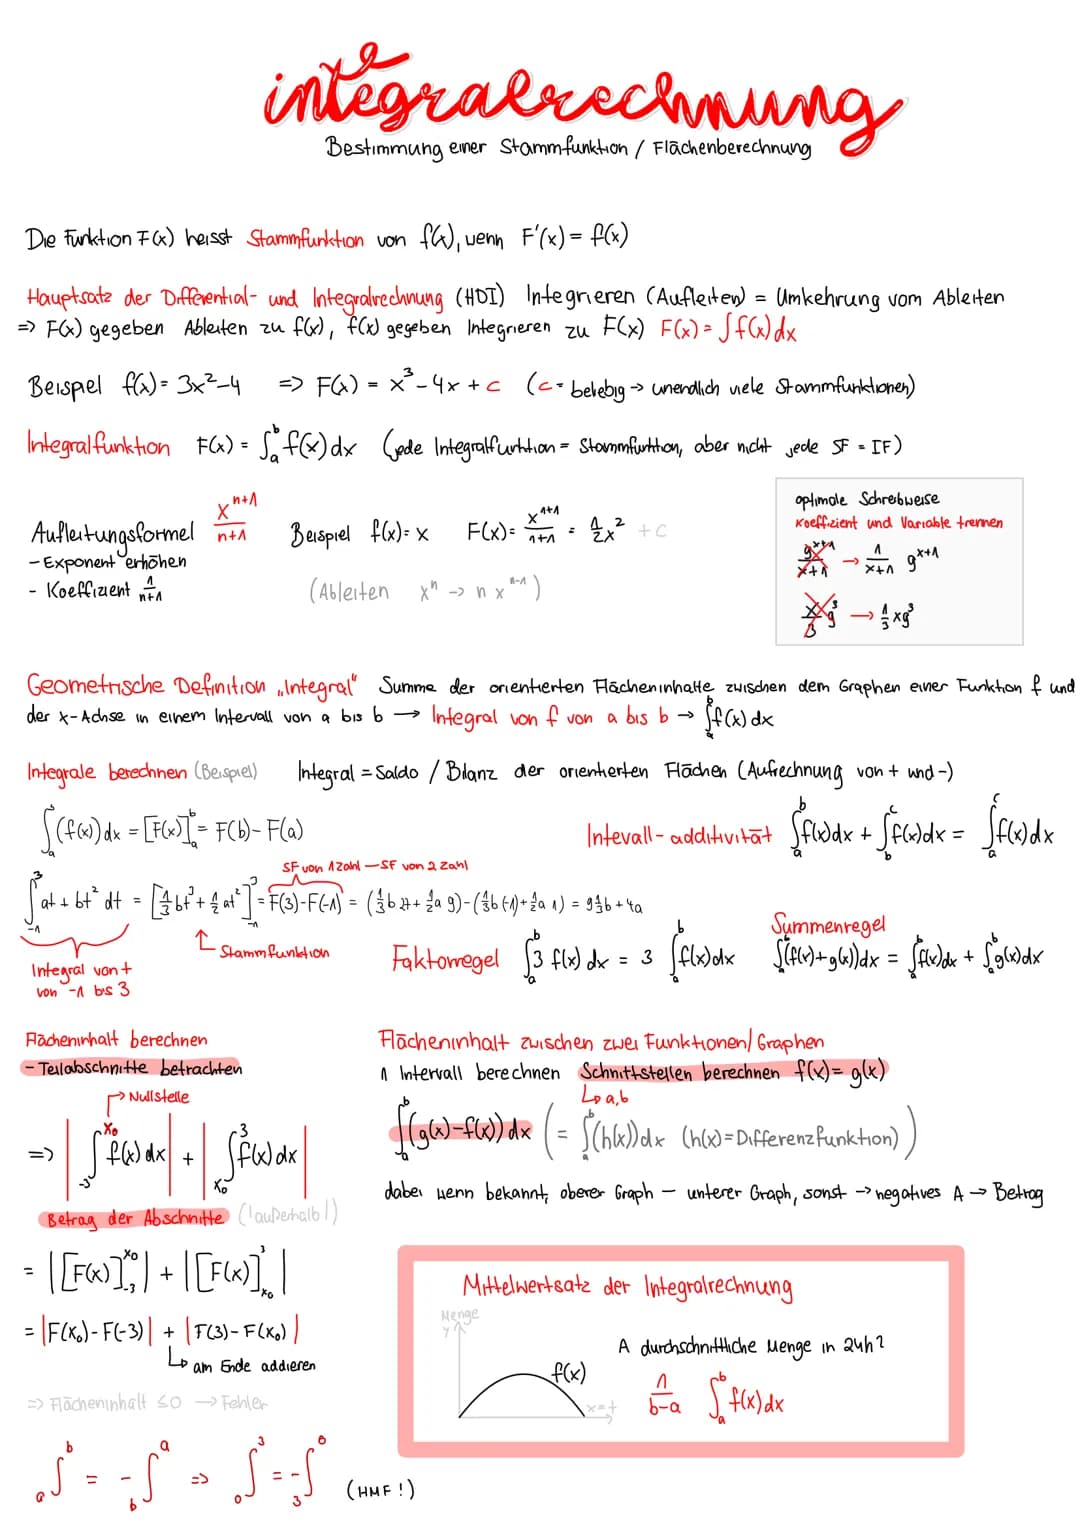 integralrechnung
Bestimmung einer Stammfunktion / Flächenberechnung
Die Funktion F(x) heisst Stammfunktion von f(x), wenn F'(x) = f(x)
Hauptsatz der Differential- und Integralrechnung (HDI) Integrieren (Aufleiten) = Umkehrung vom Ableiten
=> F(x) gegeben Ableiten zu f(x), f(x) gegeben Integrieren zu F(x) F(x) = ∫f(x)dx
Beispiel f(x) = 3x²-4 => F(x) = x³-4x + c (c = beliebig → unendlich viele Stammfunktionen)
Integralfunktion F(x) = ∫ₐᵇ f(x)dx (jede Integralfunktion = Stammfunktion, aber nicht jede SF = IF)
Aufleitungsformel x^(n+1)/(n+1)
- Exponent erhöhen
- Koeffizient 1/(n+1)
Beispiel f(x) = x F(x) = x^(1+1)/(1+1) = 1/2 x² + c
(Ableiten xⁿ → n x^(n-1))
optimale Schreibweise
Koeffizient und Variable trennen
g^(x+1)/(x+1) → 1/(x+1) g^(x+1)
x/3 g³ → 1/3 xg³
Geometrische Definition „Integral" Summe der orientierten Flächeninhalte zwischen dem Graphen einer Funktion f und
der x-Achse in einem Intervall von a bis b → Integral von f von a bis b → ∫ₐᵇ f(x)dx
Integrale berechnen (Beispiel) Integral = Saldo / Bilanz der orientierten Flächen (Aufrechnung von + und -)
∫ₐᵇ (f(x))dx = [F(x)]ₐᵇ = F(b) - F(a)
Intevall-additivität ∫ₐᵇ f(x)dx + ∫_b^c f(x)dx = ∫ₐᶜ f(x)dx
SF von 1 Zahl — SF von 2 Zahl
∫₋₁³ at + bt² dt = [1/3 bt³ + 1/2 at²]₋₁³ = F(3)-F(-1) = (1/3 b 27 + 1/2 a 9) - (1/3 b (-1) + 1/2 a 1) = 9 1/3 b + 4a
Integral von t
von -1 bis 3
↑ Stammfunktion
Faktorregel ∫ₐᵇ 3 f(x) dx = 3 ∫ₐᵇ f(x)dx
Summenregel
∫ₐᵇ (f(x)+g(x))dx = ∫ₐᵇ f(x)dx + ∫ₐᵇ g(x)dx
Flächeninhalt berechnen
- Teilabschnitte betrachten
→ Nullstelle
=> |∫₋₃^x₀ f(x)dx| + |∫_x₀³ f(x)dx|
Betrag der Abschnitte (! außerhalb !)
= |[F(x)]₋₃^x₀| + |[F(x)]_x₀³|
= |F(x₀) - F(-3)| + |F(3) - F(x₀)|
↳ am Ende addieren
=> Flächeninhalt ≤0 → Fehler
ₐ∫ᵇ = - _b∫ᵃ => ₀∫³ = - ₃∫⁰ (HMF!)
Flächeninhalt zwischen zwei Funktionen/Graphen
1 Intervall berechnen Schnittstellen berechnen f(x) = g(x)
↳ a,b
∫ₐᵇ (g(x)-f(x))dx (= ∫ₐᵇ (h(x))dx (h(x) = Differenzfunktion))
dabei wenn bekannt, oberer Graph - unterer Graph, sonst → negatives A → Betrag
Mittelwertsatz der Integralrechnung
Menge
y
f(x)
x=t
A durchschnittliche Menge in 24h?
1/(b-a) ∫ₐᵇ f(x)dx